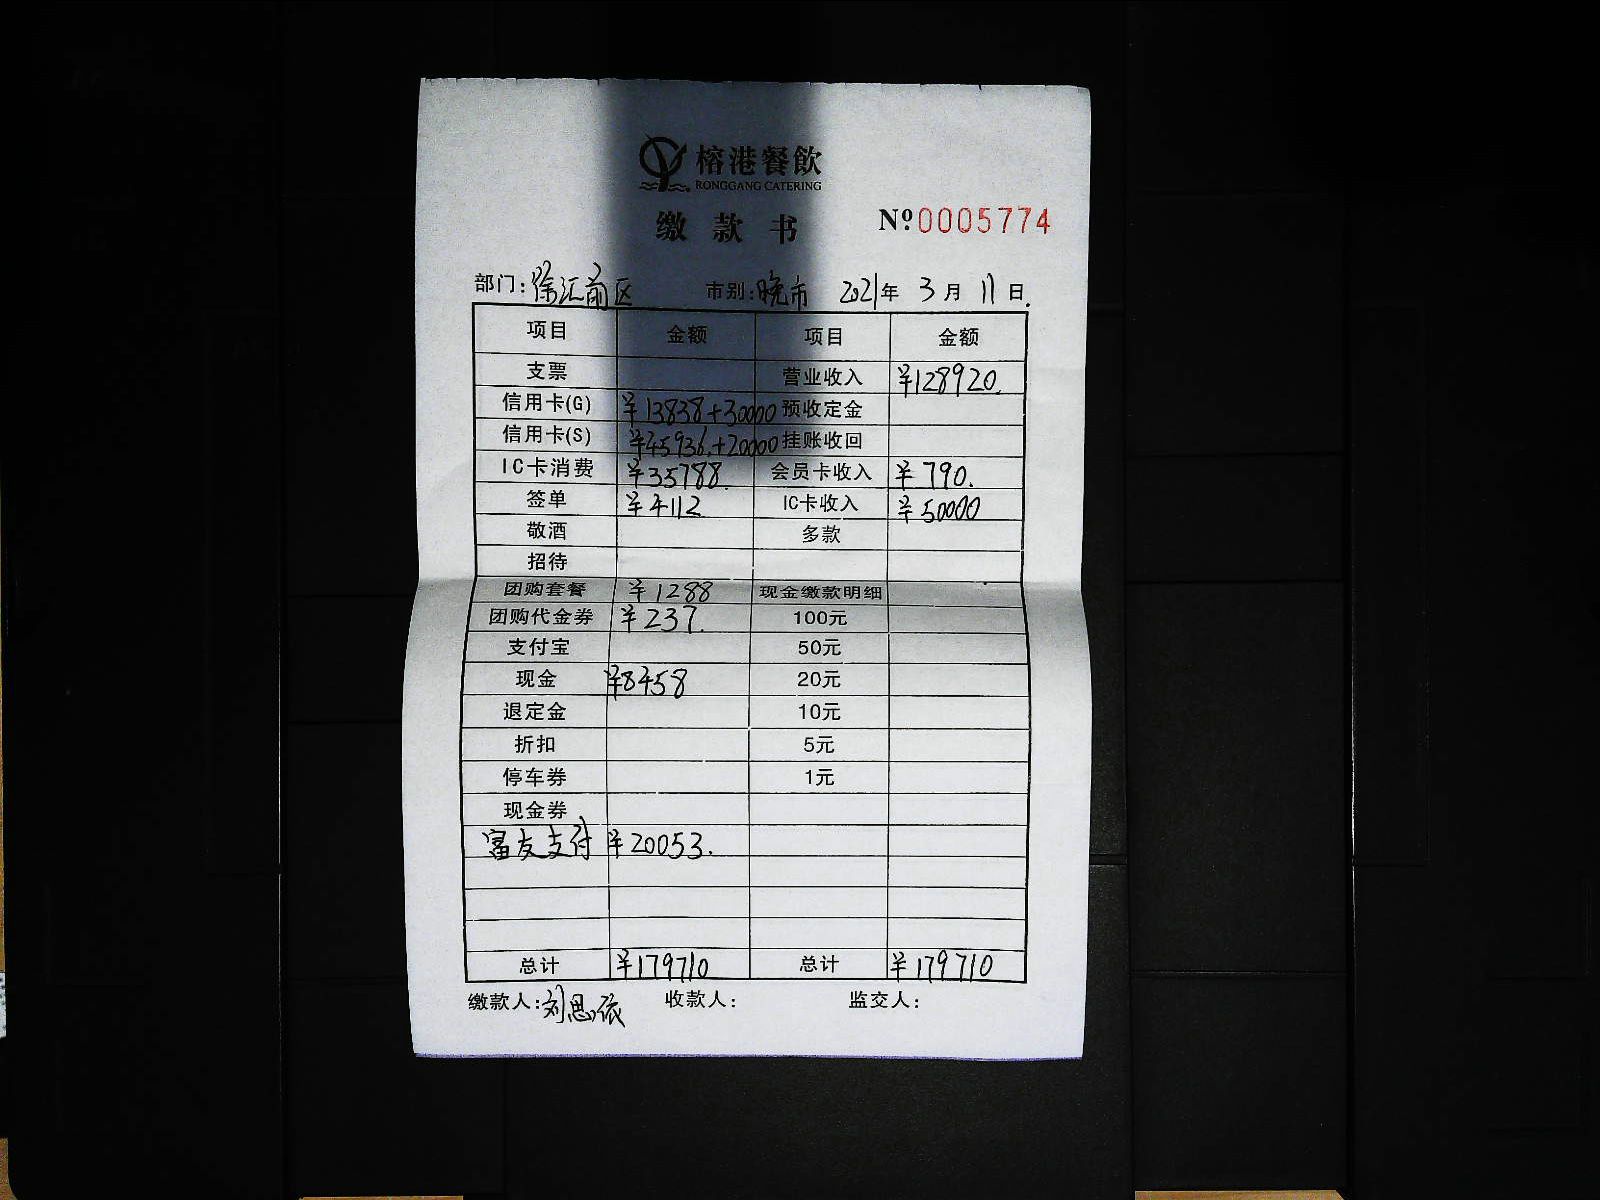 榕港餐飲
RONGGANG CATERING
缴款书
№0005774
部门:徐汇前区 市别:晚市 2021年 3月 11日.
项目 金额 项目 金额
支票 营业收入 ¥128920.
信用卡(G) ¥13838+30000 预收定金
信用卡(S) ¥45936.+20000 挂账收回
IC卡消费 ¥35788. 会员卡收入 ¥790.
签单 ¥4112 IC卡收入 ¥50000
敬酒 多款
招待
团购套餐 ¥1288 现金缴款明细
团购代金券 ¥237. 100元
支付宝 50元
现金 ¥8458 20元
退定金 10元
折扣 5元
停车券 1元
现金券
富友支付 ¥20053.
总计 ¥179710 总计 ¥179710
缴款人:刘思依 收款人: 监交人: